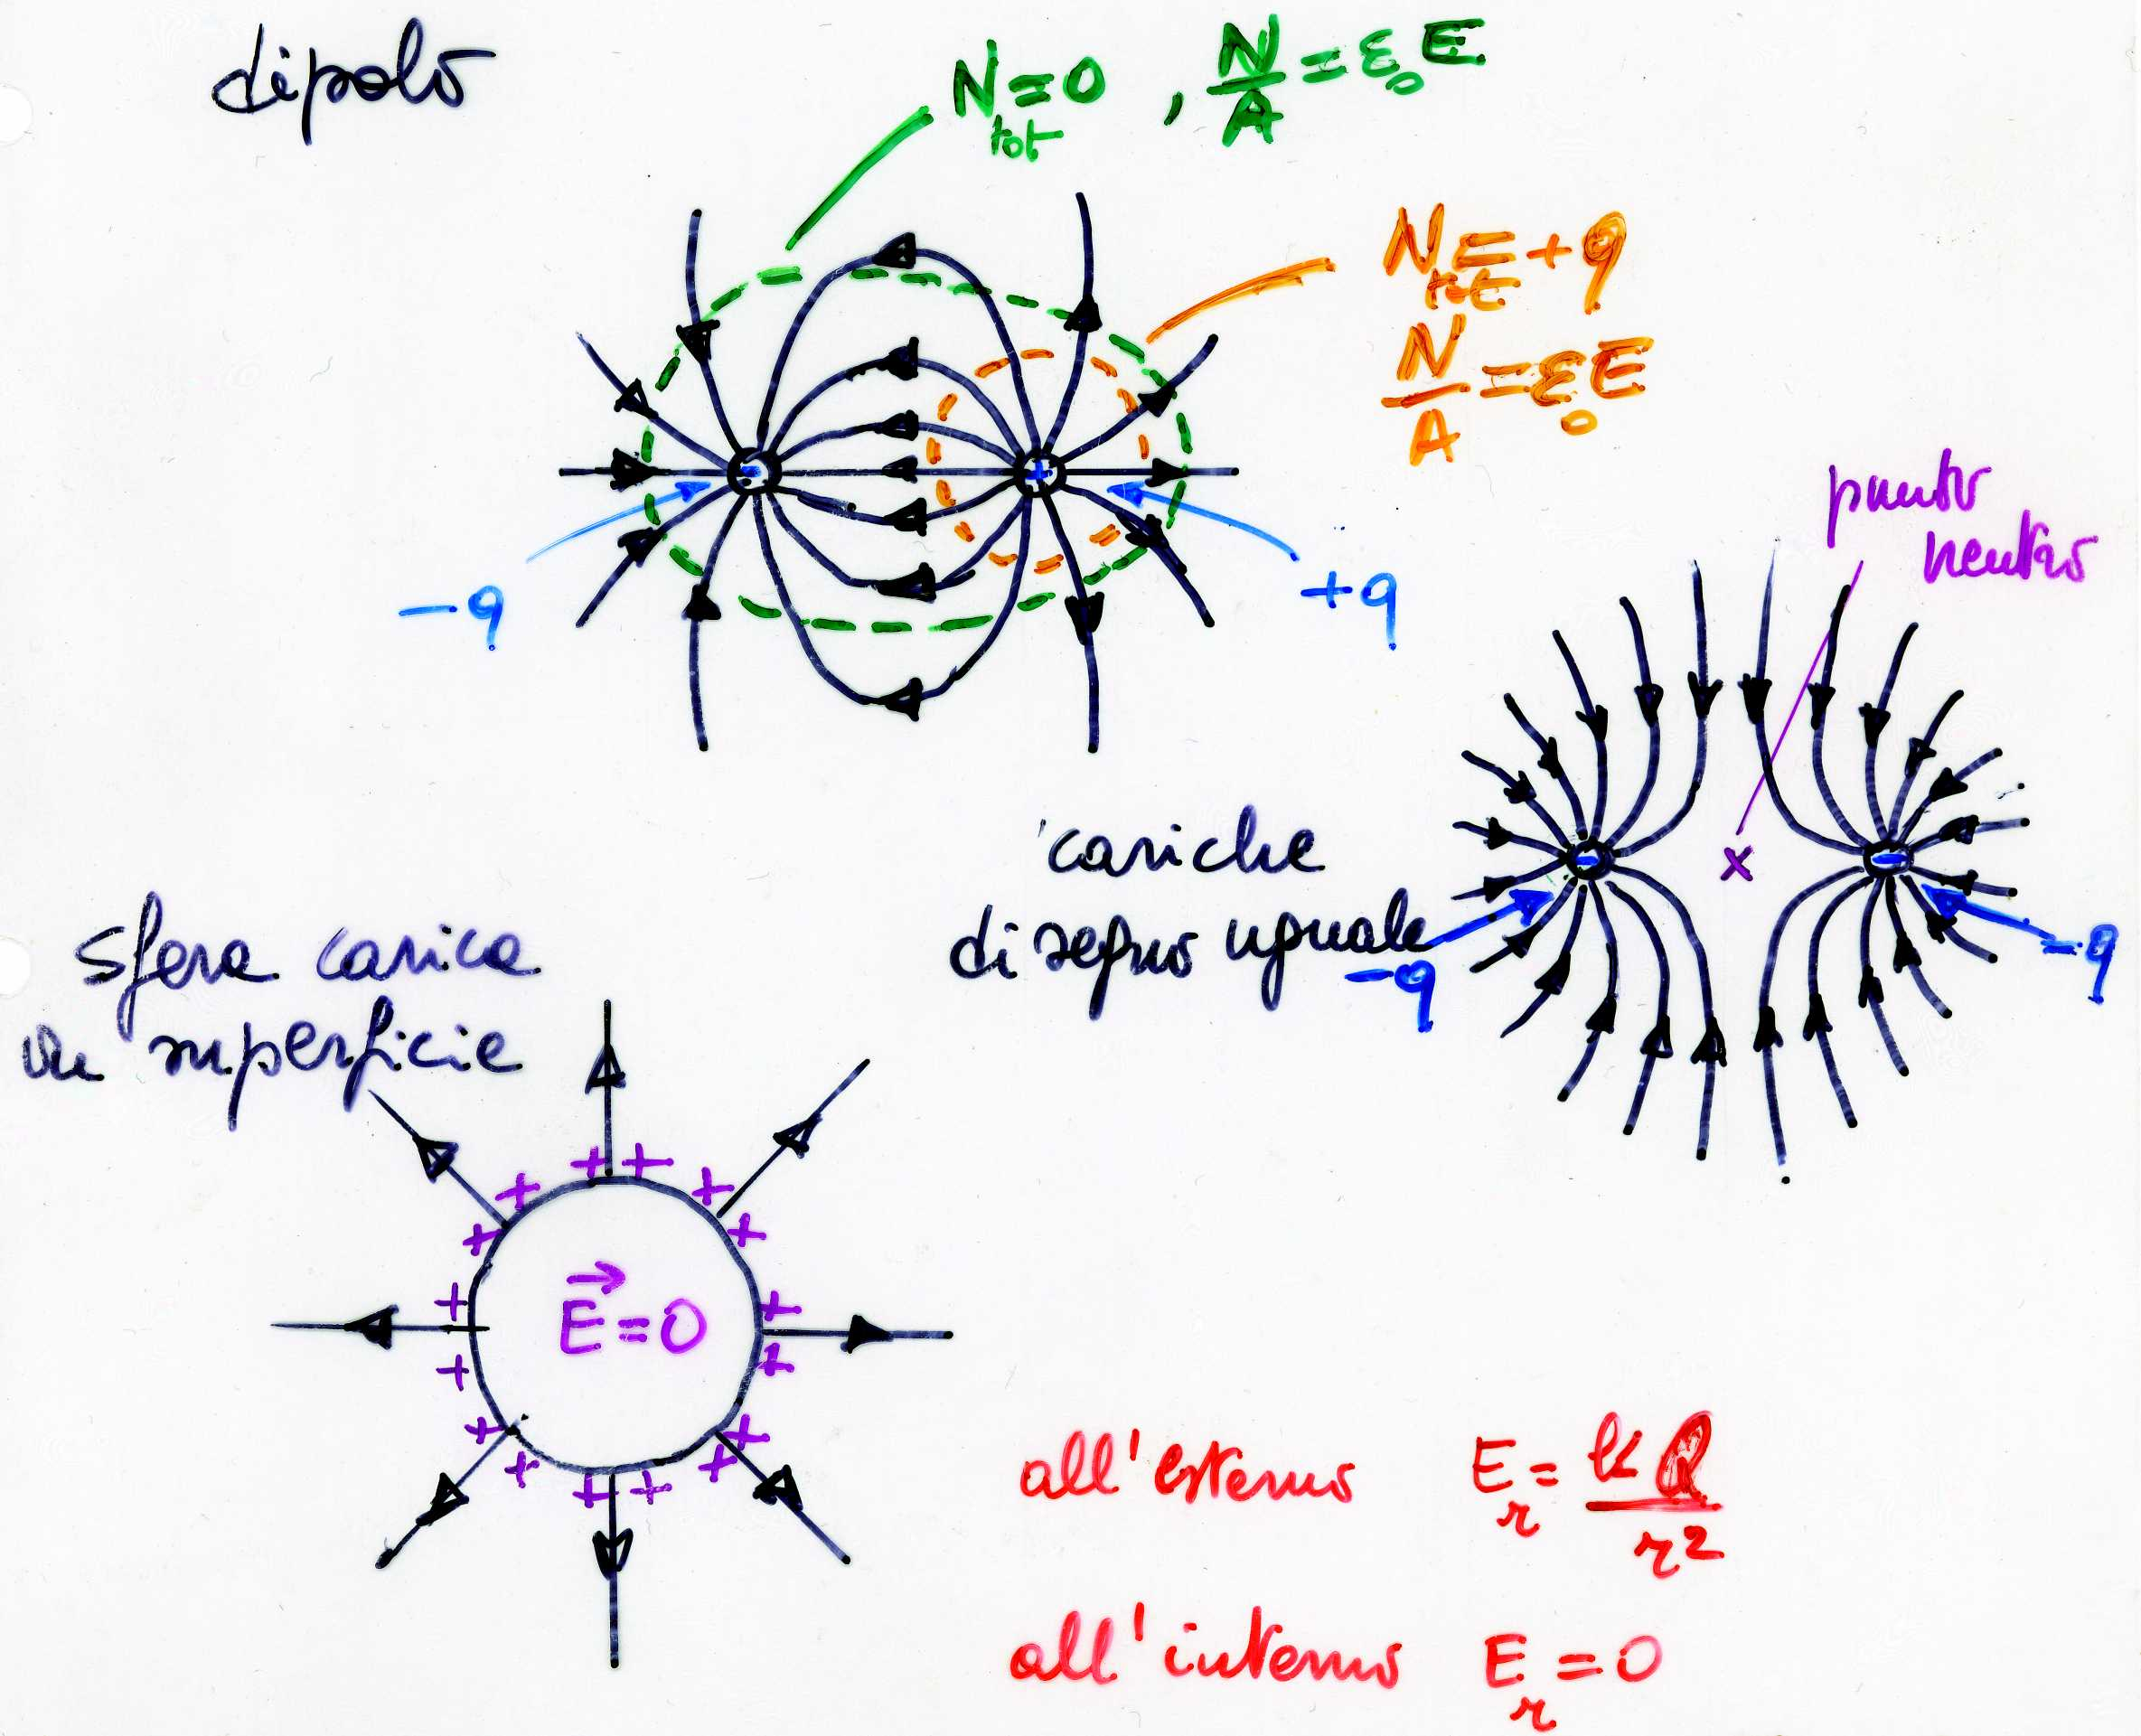 dipolo
N_tot = 0 , N/A = ε₀E
N_tot = +q
N/A = ε₀E
-
+
-q
+q
punto
neutro
cariche
di segno uguale
-
x
-
-q
-q
sfera carica
in superficie
+ +
+ +
+ +
+ +
+ +
+ +
+ +
+ +
E⃗ = 0
all'esterno E_r = kQ/r²
all'interno E_r = 0